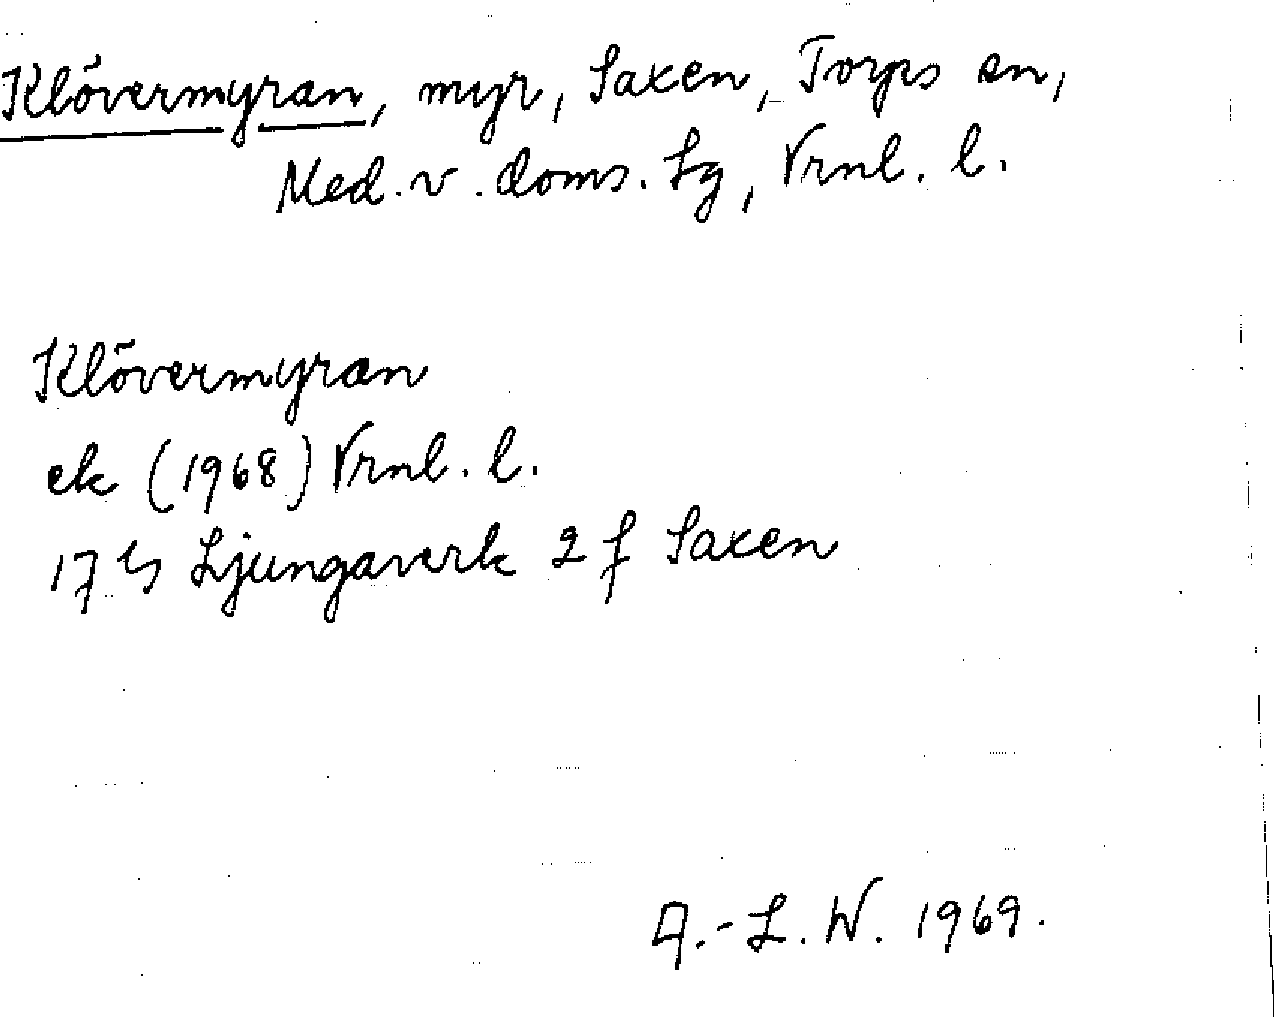 Klövermyran, myr, Saxen, Torps sn,
Med. v. doms. tg, Vrnl. l.
Klövermyran
ek (1968) Vrnl. l.
17 G Ljungaverk 2 f Saxen
A.-L. W. 1969.